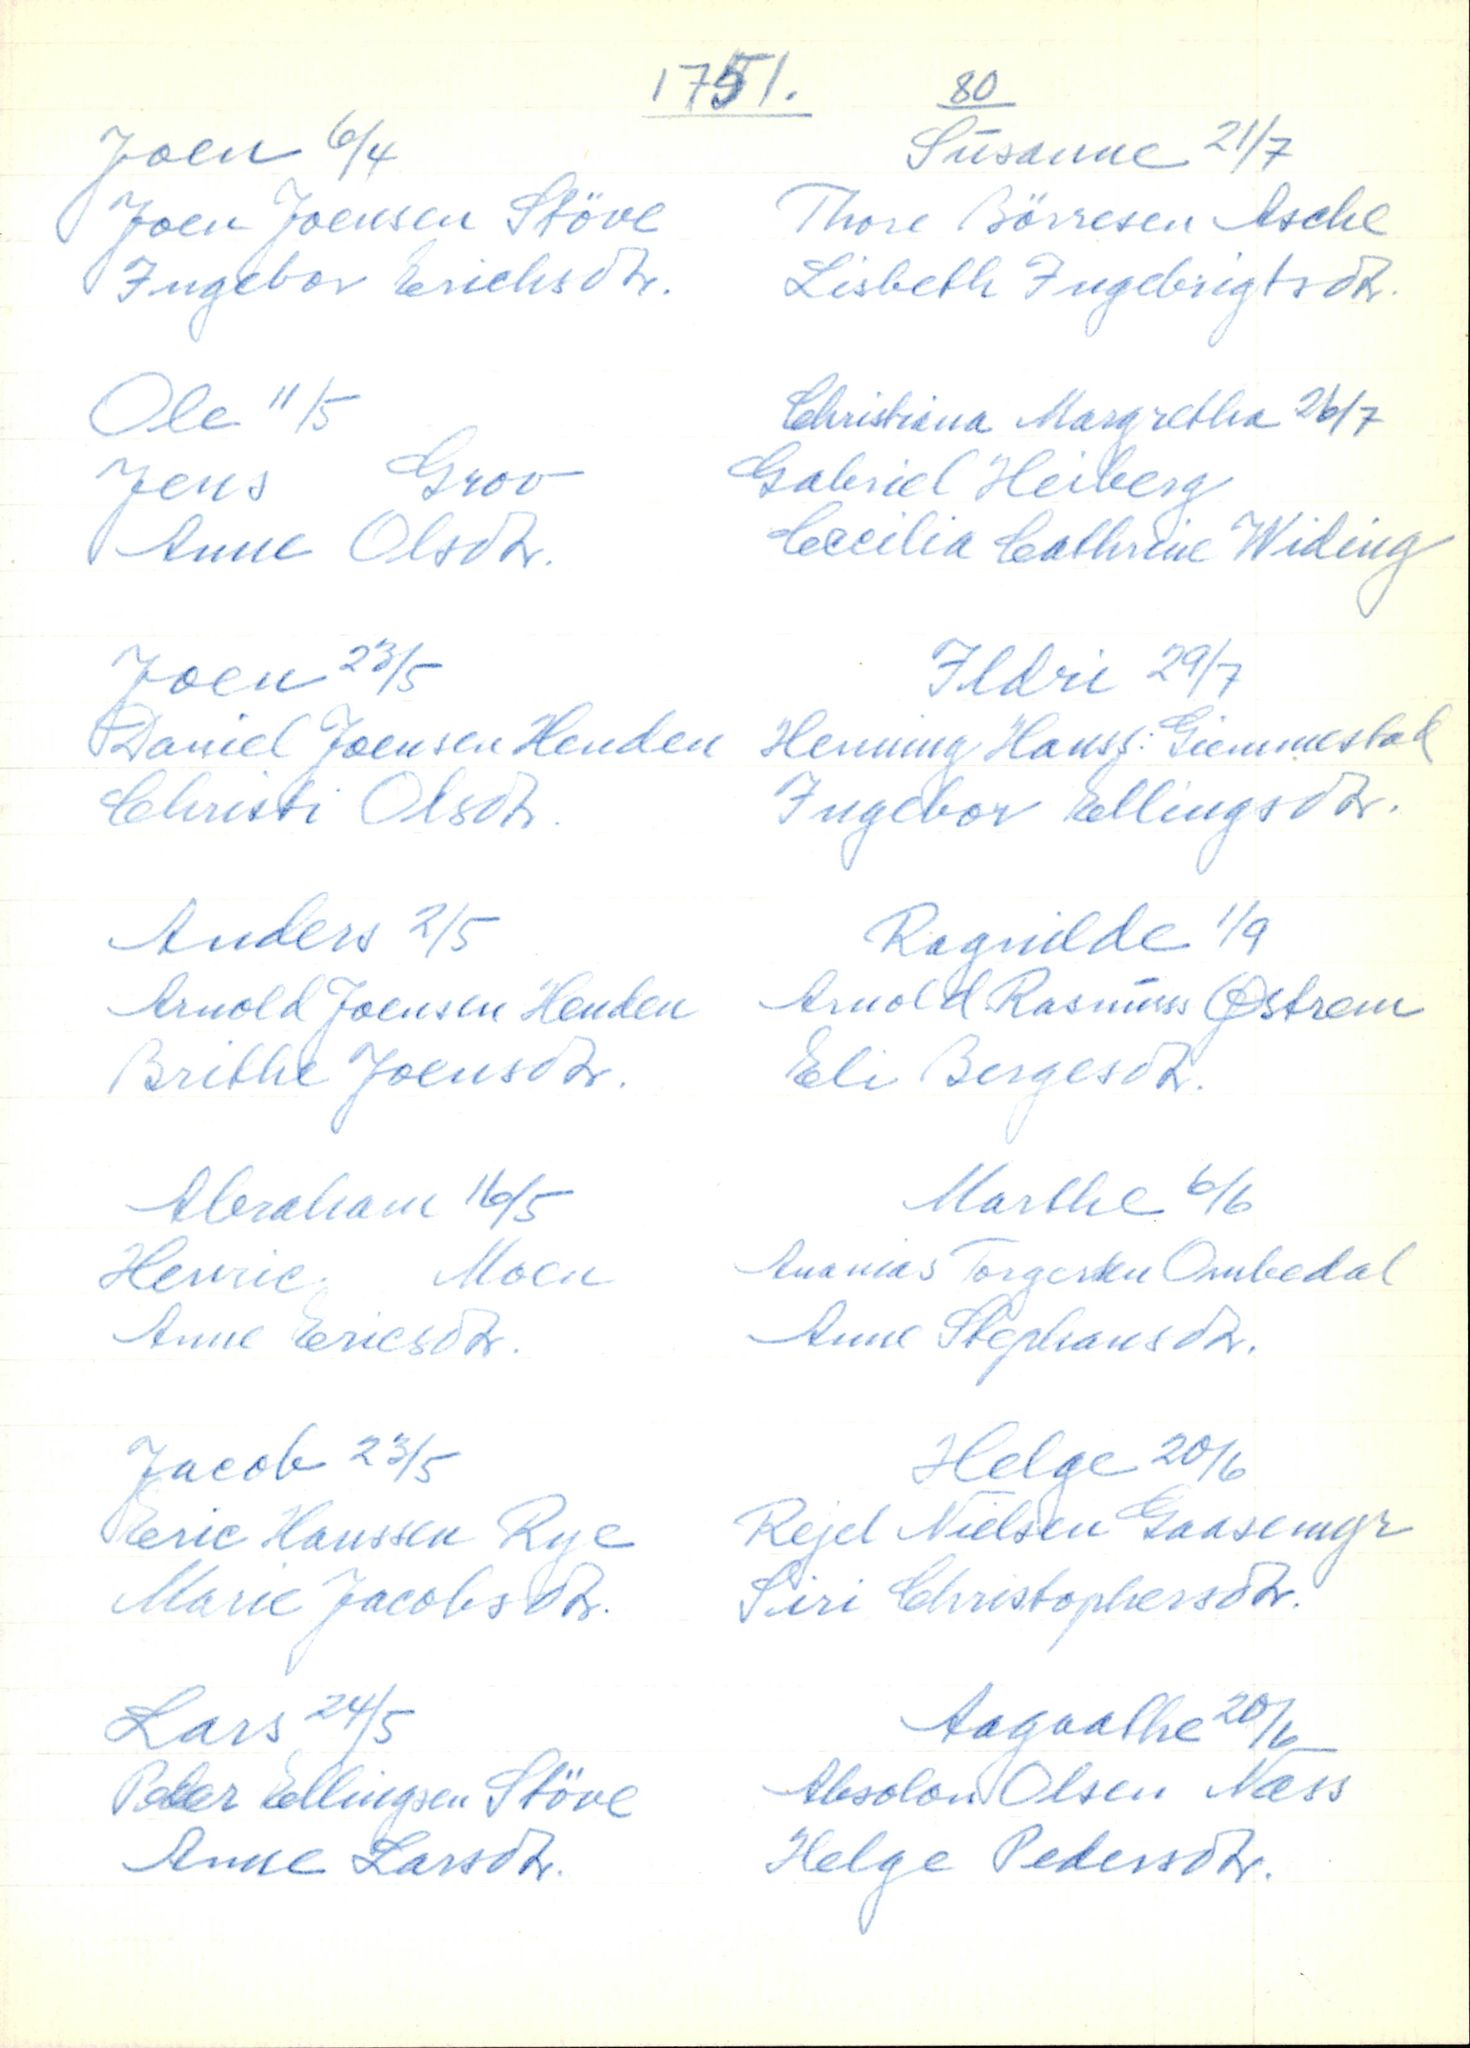 1751.
80
Joen 6/4
Joen Joensen Støve
Ingebor Erichsdtr.
Ole 11/5
Jens Grov
Anne Olsdtr.
Joen 23/5
Daniel Joensen Henden
Christi Olsdtr.
Anders 2/5
Arnold Joensen Henden
Brithe Joensdtr.
Abraham 16/5
Henric Moen
Anne Ericsdtr.
Jacob 23/5
Eric Hanssen Rye
Marie Jacobsdtr.
Lars 24/5
Peder Ellingsen Støve
Anne Larsdtr.
Susanne 21/7
Thore Börresen Asche
Lisbeth Ingebrigtsdtr.
Christiana Margretha 26/7
Gabriel Heiberg
Cecilia Cathrine Widing
Ildri 29/7
Henning Hanss: Giemmestad
Ingebor Ellingsdtr.
Ragnilde 1/9
Arnold Rasmuss Østrem
Eli Bergesdtr.
Marthe 6/6
Ananias Torgersen Ombedal
Anne Stephansdtr.
Helge 20/6
Rejel Nielsen Gaasemyr
Siri Christophersdtr.
Aagaathe 20/6
Absolon Olsen Næss
Helge Pedersdtr.